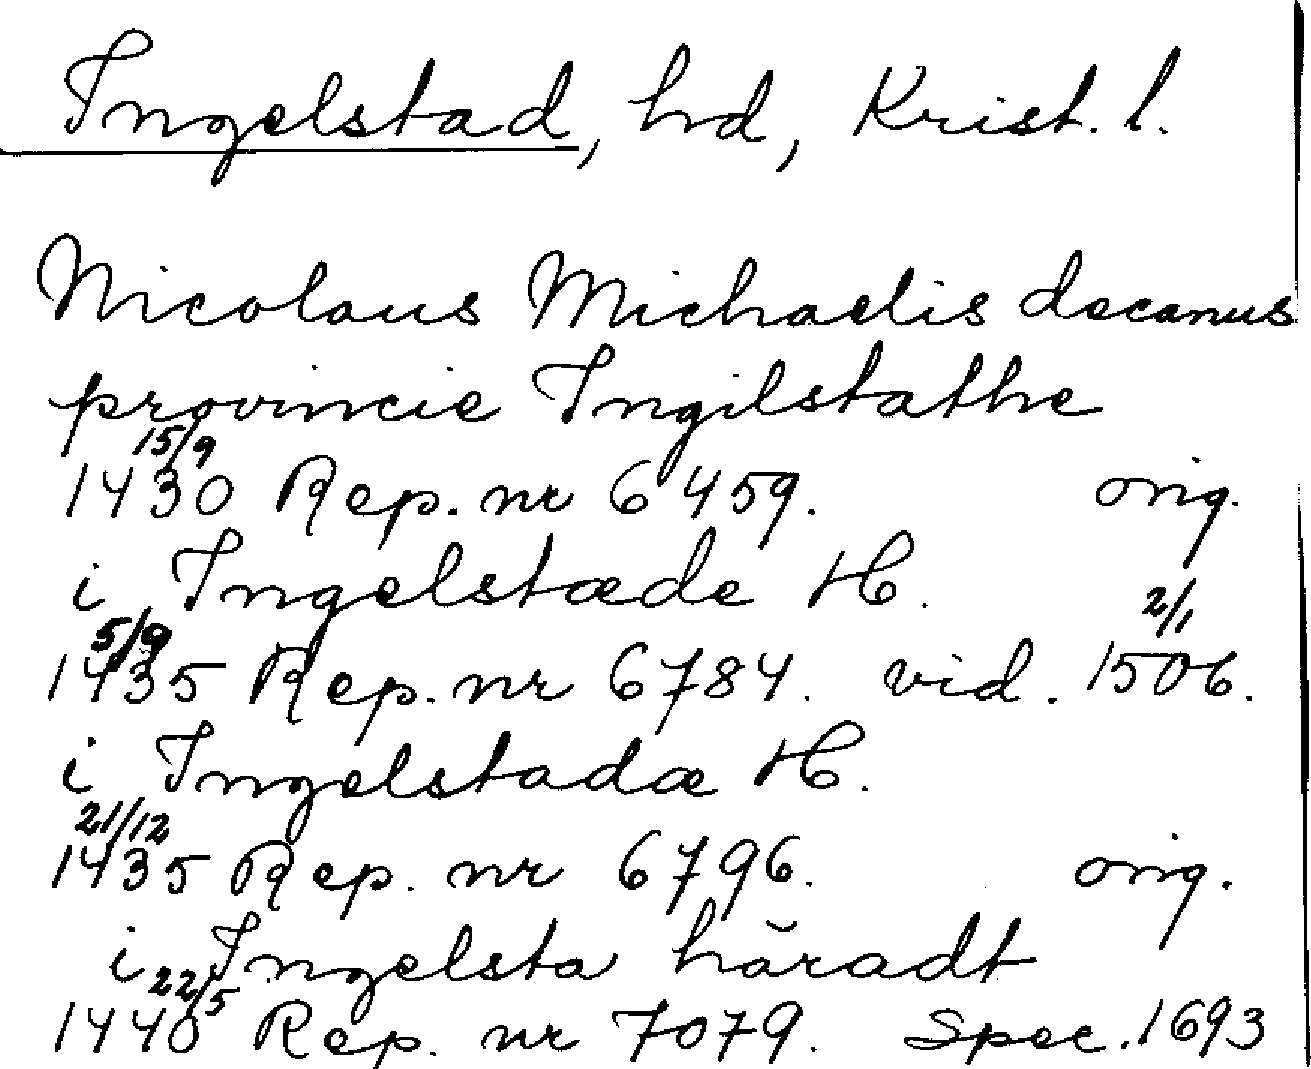 Ingelstad, hd, Krist. l.
Nicolaus Michaelis decanus
provincie Ingilstathe
15/9
1430 Rep. nr 6459. orig.
i Ingelstæde H.
5/9 2/1
1435 Rep. nr 6784. vid. 1506.
i Ingelstadæ H.
21/12
1435 Rep. nr 6796. orig.
i Ingelsta häradt
22/5
1440 Rep. nr 7079. Spec. 1693